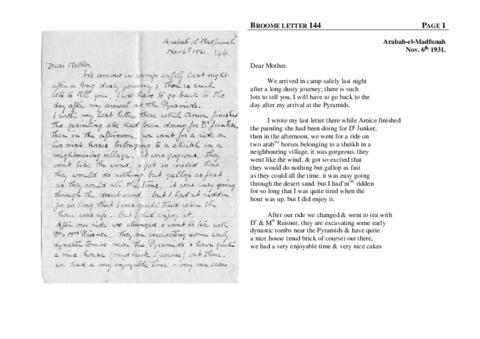 Arabah-el-Madfunah
Nov. 6th 1931. 144
Dear Mother.
We arrived in camp safely last night
after a long dusty journey; there is such
lots to tell you, I will have to go back to the
day after my arrival at the Pyramids.
I wrote my last letter there while Amice finished
the painting she had been doing for Dr Junker,
then in the afternoon, we went for a ride on
two arab horses belonging to a sheikh in a
neighbouring village, it was gorgeous, they
went like the wind, & got so excited that
they would do nothing but gallop as fast
as they could all the time, it was easy going
through the desert sand, but I had'nt ridden
for so long that I was quite tired when the
hour was up. but I did enjoy it.
After our ride we changed & went to tea with
Dr & Mrs Reisner, they are excavating some early
dynastic tombs near the Pyramids & have quite
a nice house (mud brick of course) out there,
we had a very enjoyable time & very nice cakes
BROOME LETTER 144 PAGE 1
Arabah-el-Madfunah
Nov. 6th 1931.
Dear Mother.
We arrived in camp safely last night
after a long dusty journey; there is such
lots to tell you, I will have to go back to the
day after my arrival at the Pyramids.
I wrote my last letter there while Amice finished
the painting she had been doing for Dr Junker,
then in the afternoon, we went for a ride on
two arab horses belonging to a sheikh in a
neighbouring village, it was gorgeous, they
went like the wind, & got so excited that
they would do nothing but gallop as fast
as they could all the time, it was easy going
through the desert sand. but I had'nt ridden
for so long that I was quite tired when the
hour was up. but I did enjoy it.
After our ride we changed & went to tea with
Dr & Mrs Reisner, they are excavating some early
dynastic tombs near the Pyramids & have quite
a nice house (mud brick of course) out there,
we had a very enjoyable time & very nice cakes